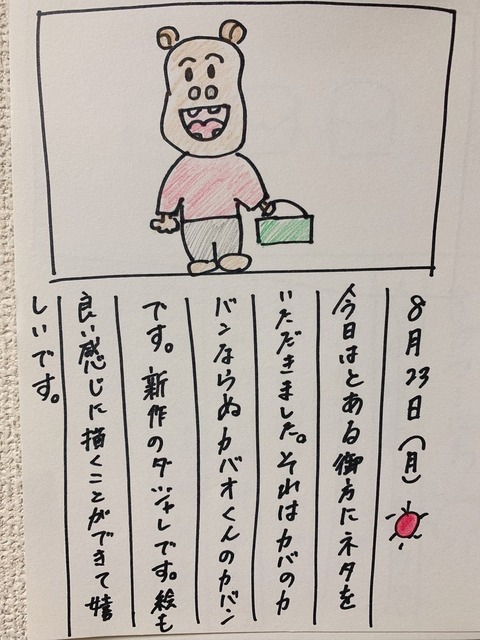 8月23日(月)
今日はとある御方にネタを
いただきました。それはカバのカ
バンならぬカバオくんのカバン
です。新作のダジャレです。絵も
良い感じに描くことができて嬉
しいです。